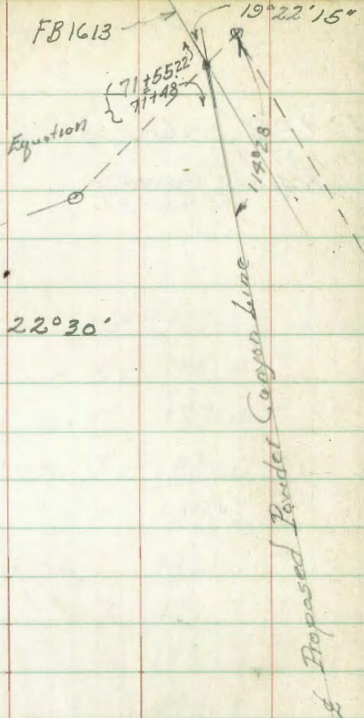 FB1613
19°22'15"
71+55.22
71+48
Equation
114°28'
22°30'
℄ Proposed Poudel Canyon Line